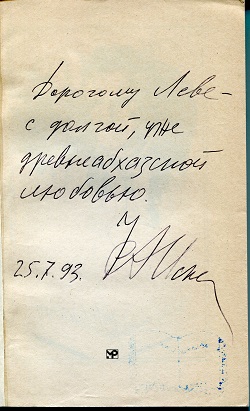 Дорогому Леве -
с долгой, уже
древнеабхазской
любовью.
25.7.93.